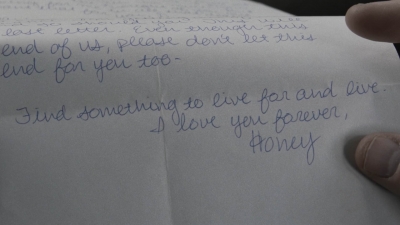 last letter. Even though this
end of us, please don't let this
end for you too.
Find something to live for and live.
I love you forever,
Honey